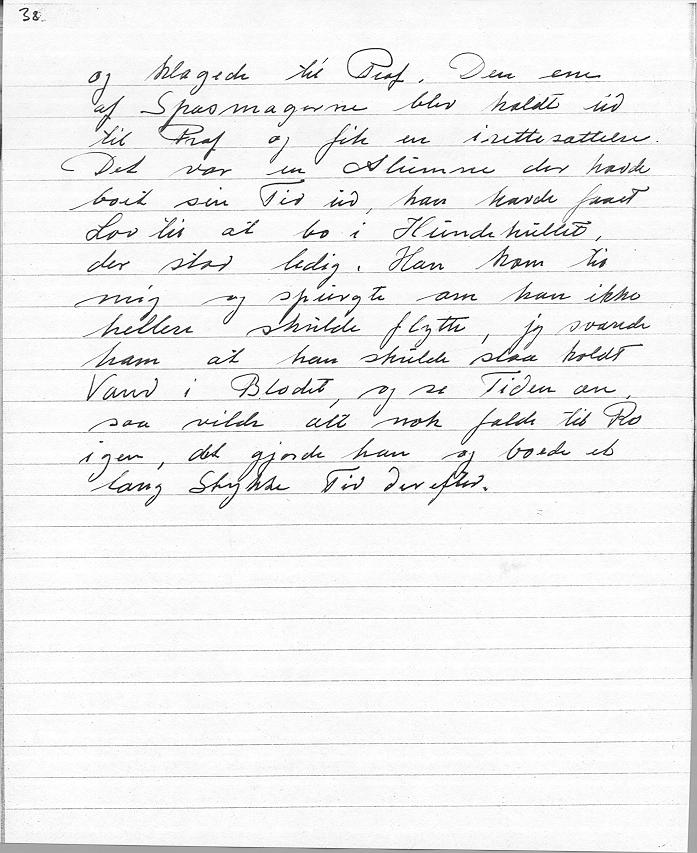 38
og klagede til Prof. Den ene
af Spasmagerne blev kaldt ud
til Prof og fik en irettesættelse.
Det var en Alumne der havde
boet sin Tid ud, han havde faaet
Lov til at bo i Hundehullet,
der stod ledig. Han kom til
mig og spurgte om han ikke
hellere skulde flytte, jeg svarede
ham at han skulde slaa koldt
Vand i Blodet, og se Tiden an,
saa vilde alt nok falde til Ro
igen, det gjorde han og boede et
lang Stykke Tid derefter.